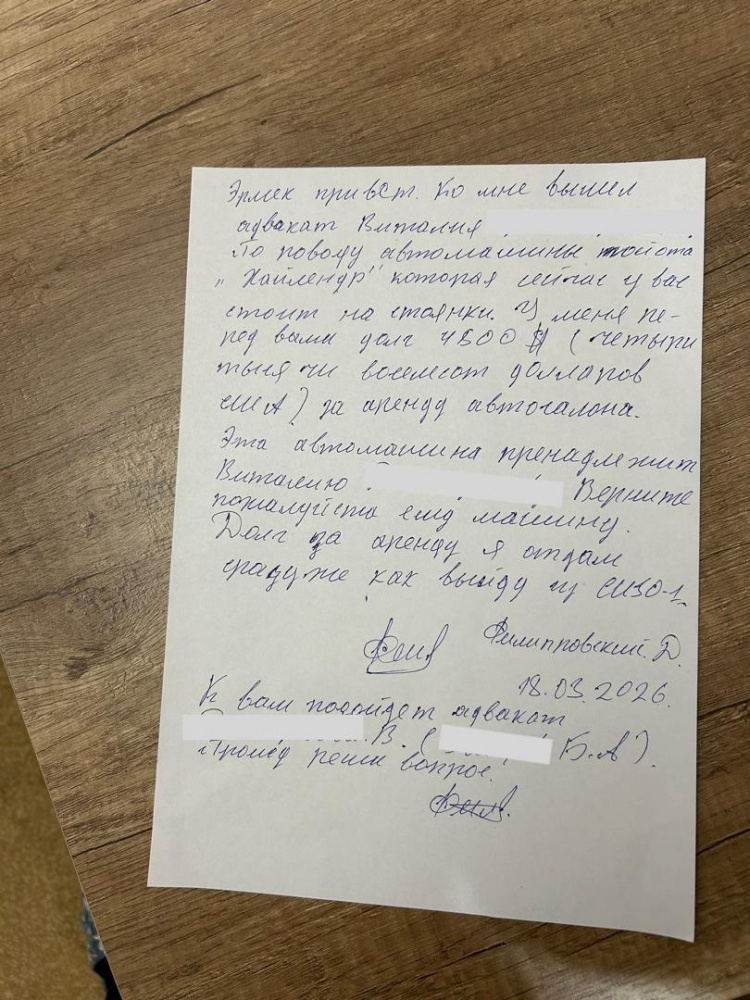 Эрмек привет. Ко мне вышел
адвакат Виталия
По поводу автомашины тойота
„Хайлендр" которая сейчас у вас
стоит на стоянки. У меня пе-
ред вами долг 4800 $ (четыри
тысячи восемсот долларов
США) за аренду автосалона.
Эта автомашина пренадлежит
Виталию Верните
пожалуйста ему машину.
Долг за аренду я отдам
сразу же как выйду из СИЗО-1
Филипповский. Д.
18.03.2026.
К вам подойдет адвакат
.В. ( Б.А).
Прошу реши вопрос.